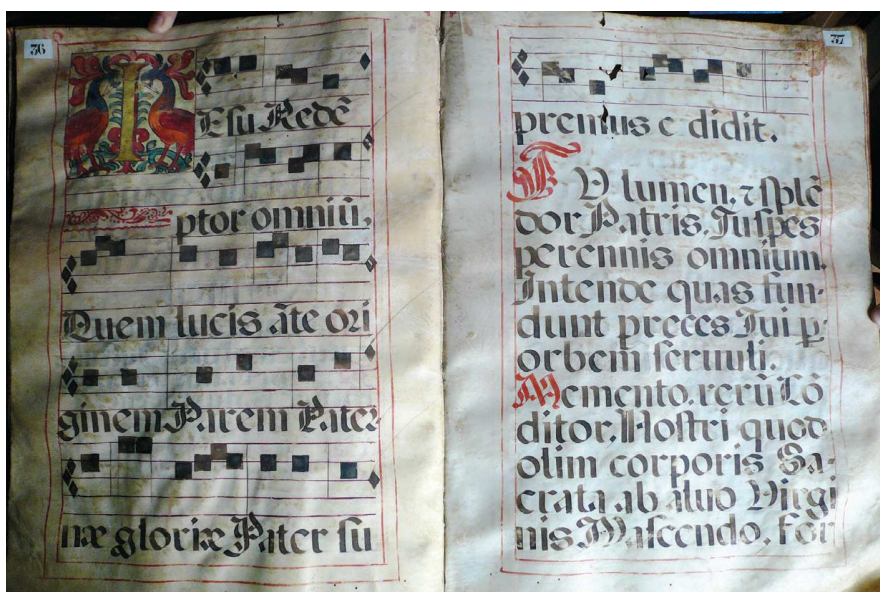 36
IEsu Redē
ptor omniū,
Quem lucis āte ori
ginem Parem Pater
næ gloriæ Pater su
37
premus e didit.
TV lumen, ⁊ splē
dor Patris, Tu spes
perennis omnium,
Intende quas fun-
dunt preces Tui ꝑ
orbem seruuli.
Memento, rerū Cō
ditor, Nostri quod
olim corporis Sa-
crata ab aluo Virgi
nis Nascendo, for